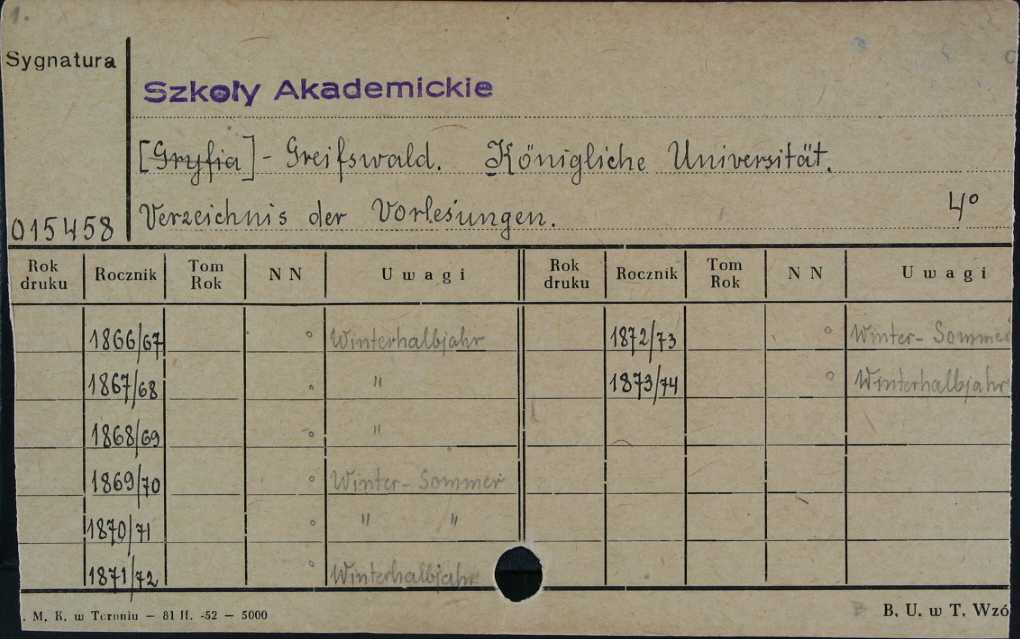 1.
Sygnatura
Szkoły Akademickie
[Gryfia] - Greifswald. Königliche Universität.
015458 Verzeichnis der Vorlesungen. 4°
Rok druku Rocznik Tom Rok N N Uwagi Rok druku Rocznik Tom Rok N N Uwagi
1866/67 ° Winterhalbjahr 1872/73 ° Winter- Sommer
1867/68 ° " 1873/74 ° Winterhalbjahr
1868/69 ° "
1869/70 ° Winter- Sommer
1870/71 ° " "
1871/72 ° Winterhalbjahr
. M. K. w Toruniu — 81 II. -52 — 5000 B. U. w T. Wzó